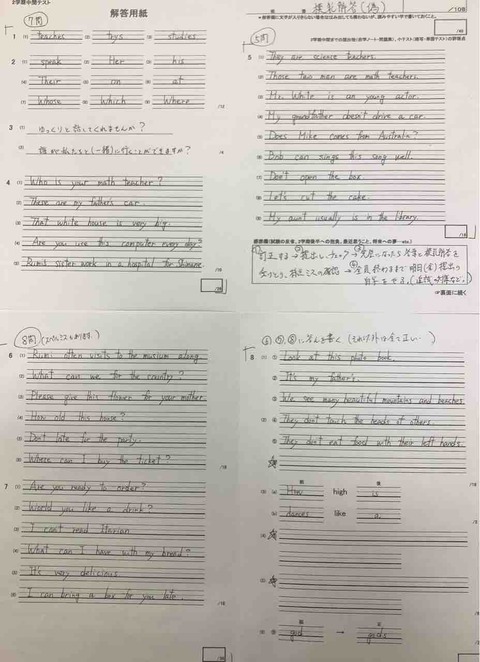 2学期中間テスト
解答用紙
7問
1 (1) teaches (2) toys (3) studies
2 (1) speak Her his
(2) Their on at
(3) Whose Which Where
3 (1) ゆっくりと話してくれませんか?
(2) 誰が私たちと(一緒に)行くことができますか?
4 (1) Who is your math teacher?
(2) These are my father's car.
(3) That white house is very big.
(4) Are you use this computer every day?
(5) Rumi's sister work in a hospital for Shimane
模範解答(偽)
/108
5問
5 (1) They are science teachers.
(2) Those two men are math teachers.
(3) Mr. White is an young actor.
(4) My grandfather doesn't drive a car.
(5) Does Mike comes from Australia?
(6) Bob can sings this song well.
(7) Don't open the box.
(8) Let's cut the cake.
(9) My aunt usually is in the library.
☞裏面に続く
8問 (スペルミスもあります。)
6 (1) Rumi often visits to the musium along.
(2) What can we for the country?
(3) Please give this flower for your mother.
(4) How old this house?
(5) Don't late for the party.
(6) Where can I buy the ticket?
7 (1) Are you ready to order?
(2) World you like a drink?
(3) I can't read Itarian
(4) What can I have with my bread?
(5) It's very delicious.
(6) I can bring a box for you late.
に答えを書く (それ以外は全て正しい)
8 (1) ① Look at this photo book.
② It's my father's.
③ We see many beautiful mountains and beaches.
④ They don't touch the heads of others.
⑤ They don't eat food with their left hands.
(3) (a) How high is
(b) dances like a
god → gods